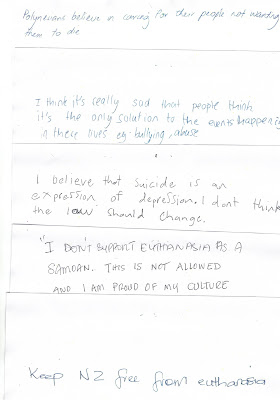 Polynesians believe in caring for their people not wanting
them to die
I think it's really sad that people think
it's the only solution to the events happening
in these lives eg. bullying, abuse
I believe that suicide is an
expression of depression. I dont think
the law should change.
"I DON'T SUPPORT EUTHANASIA AS A
SAMOAN. THIS IS NOT ALLOWED
AND I AM PROUD OF MY CULTURE
Keep NZ free from euthanasia